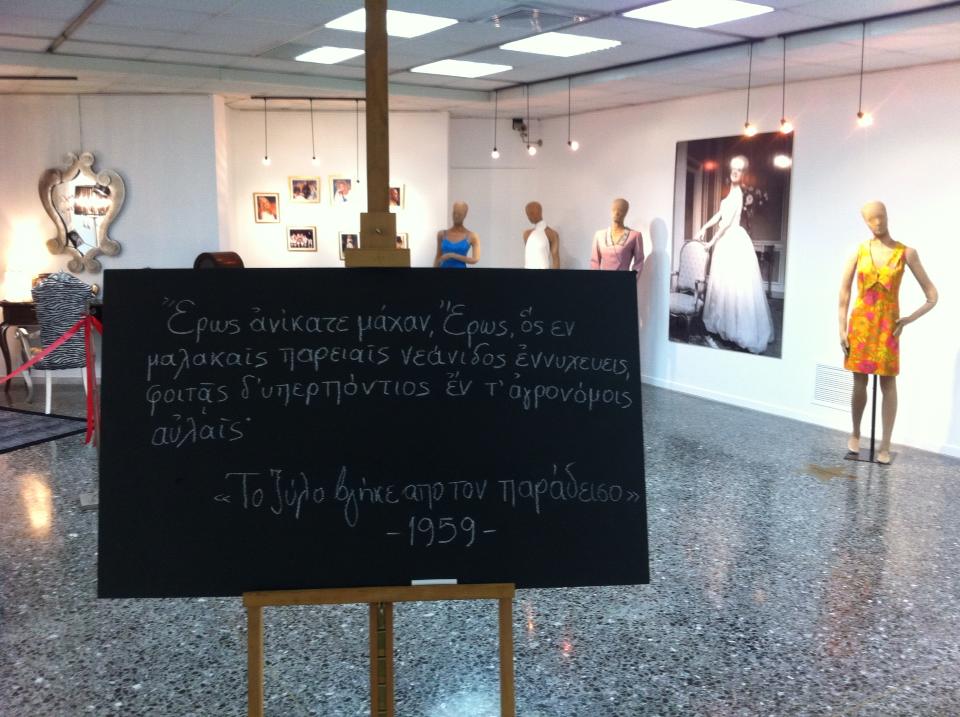 Ἔρως ἀνίκατε μάχαν, Ἔρως, ὅς εν
μαλακαῖς παρειαῖς νεάνιδος ἐννυχευεις,
φοιτᾷς δ'υπερπόντιος ἔν τ' ἀγρονόμοις
αὐλαῖς·
«Το ξύλο βγήκε απο τον παράδεισο»
-1959-